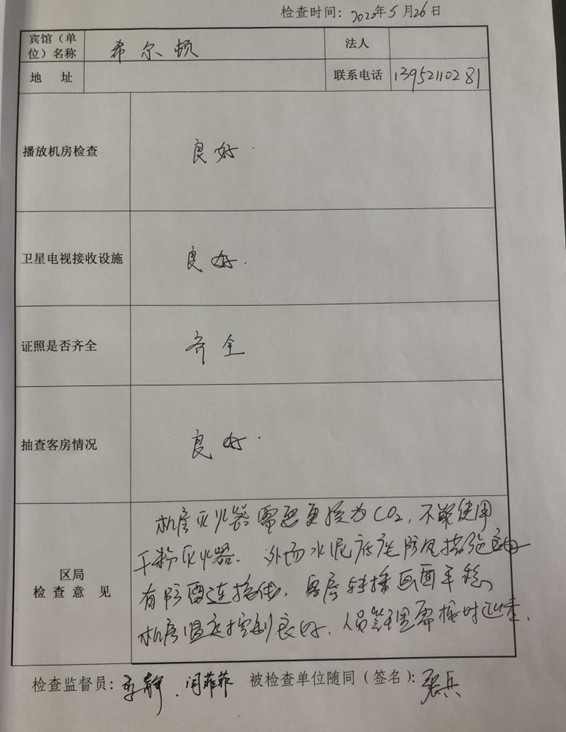 检查时间：2020年5月26日
宾馆（单位）名称 希尔顿 法人
地 址 联系电话 13952110281
播放机房检查 良好.
卫星电视接收设施 良好.
证照是否齐全 齐全
抽查客房情况 良好.
机房灭火器需要更换为CO2，不能使用
区局 干粉灭火器. 外场水泥底座防风措施
检查意见 有防雷连接线，客房转播画面平稳，
机房温度控制良好. 人员管理需按时
检查监督员：李静、闫菲菲 被检查单位随同（签名）：兵